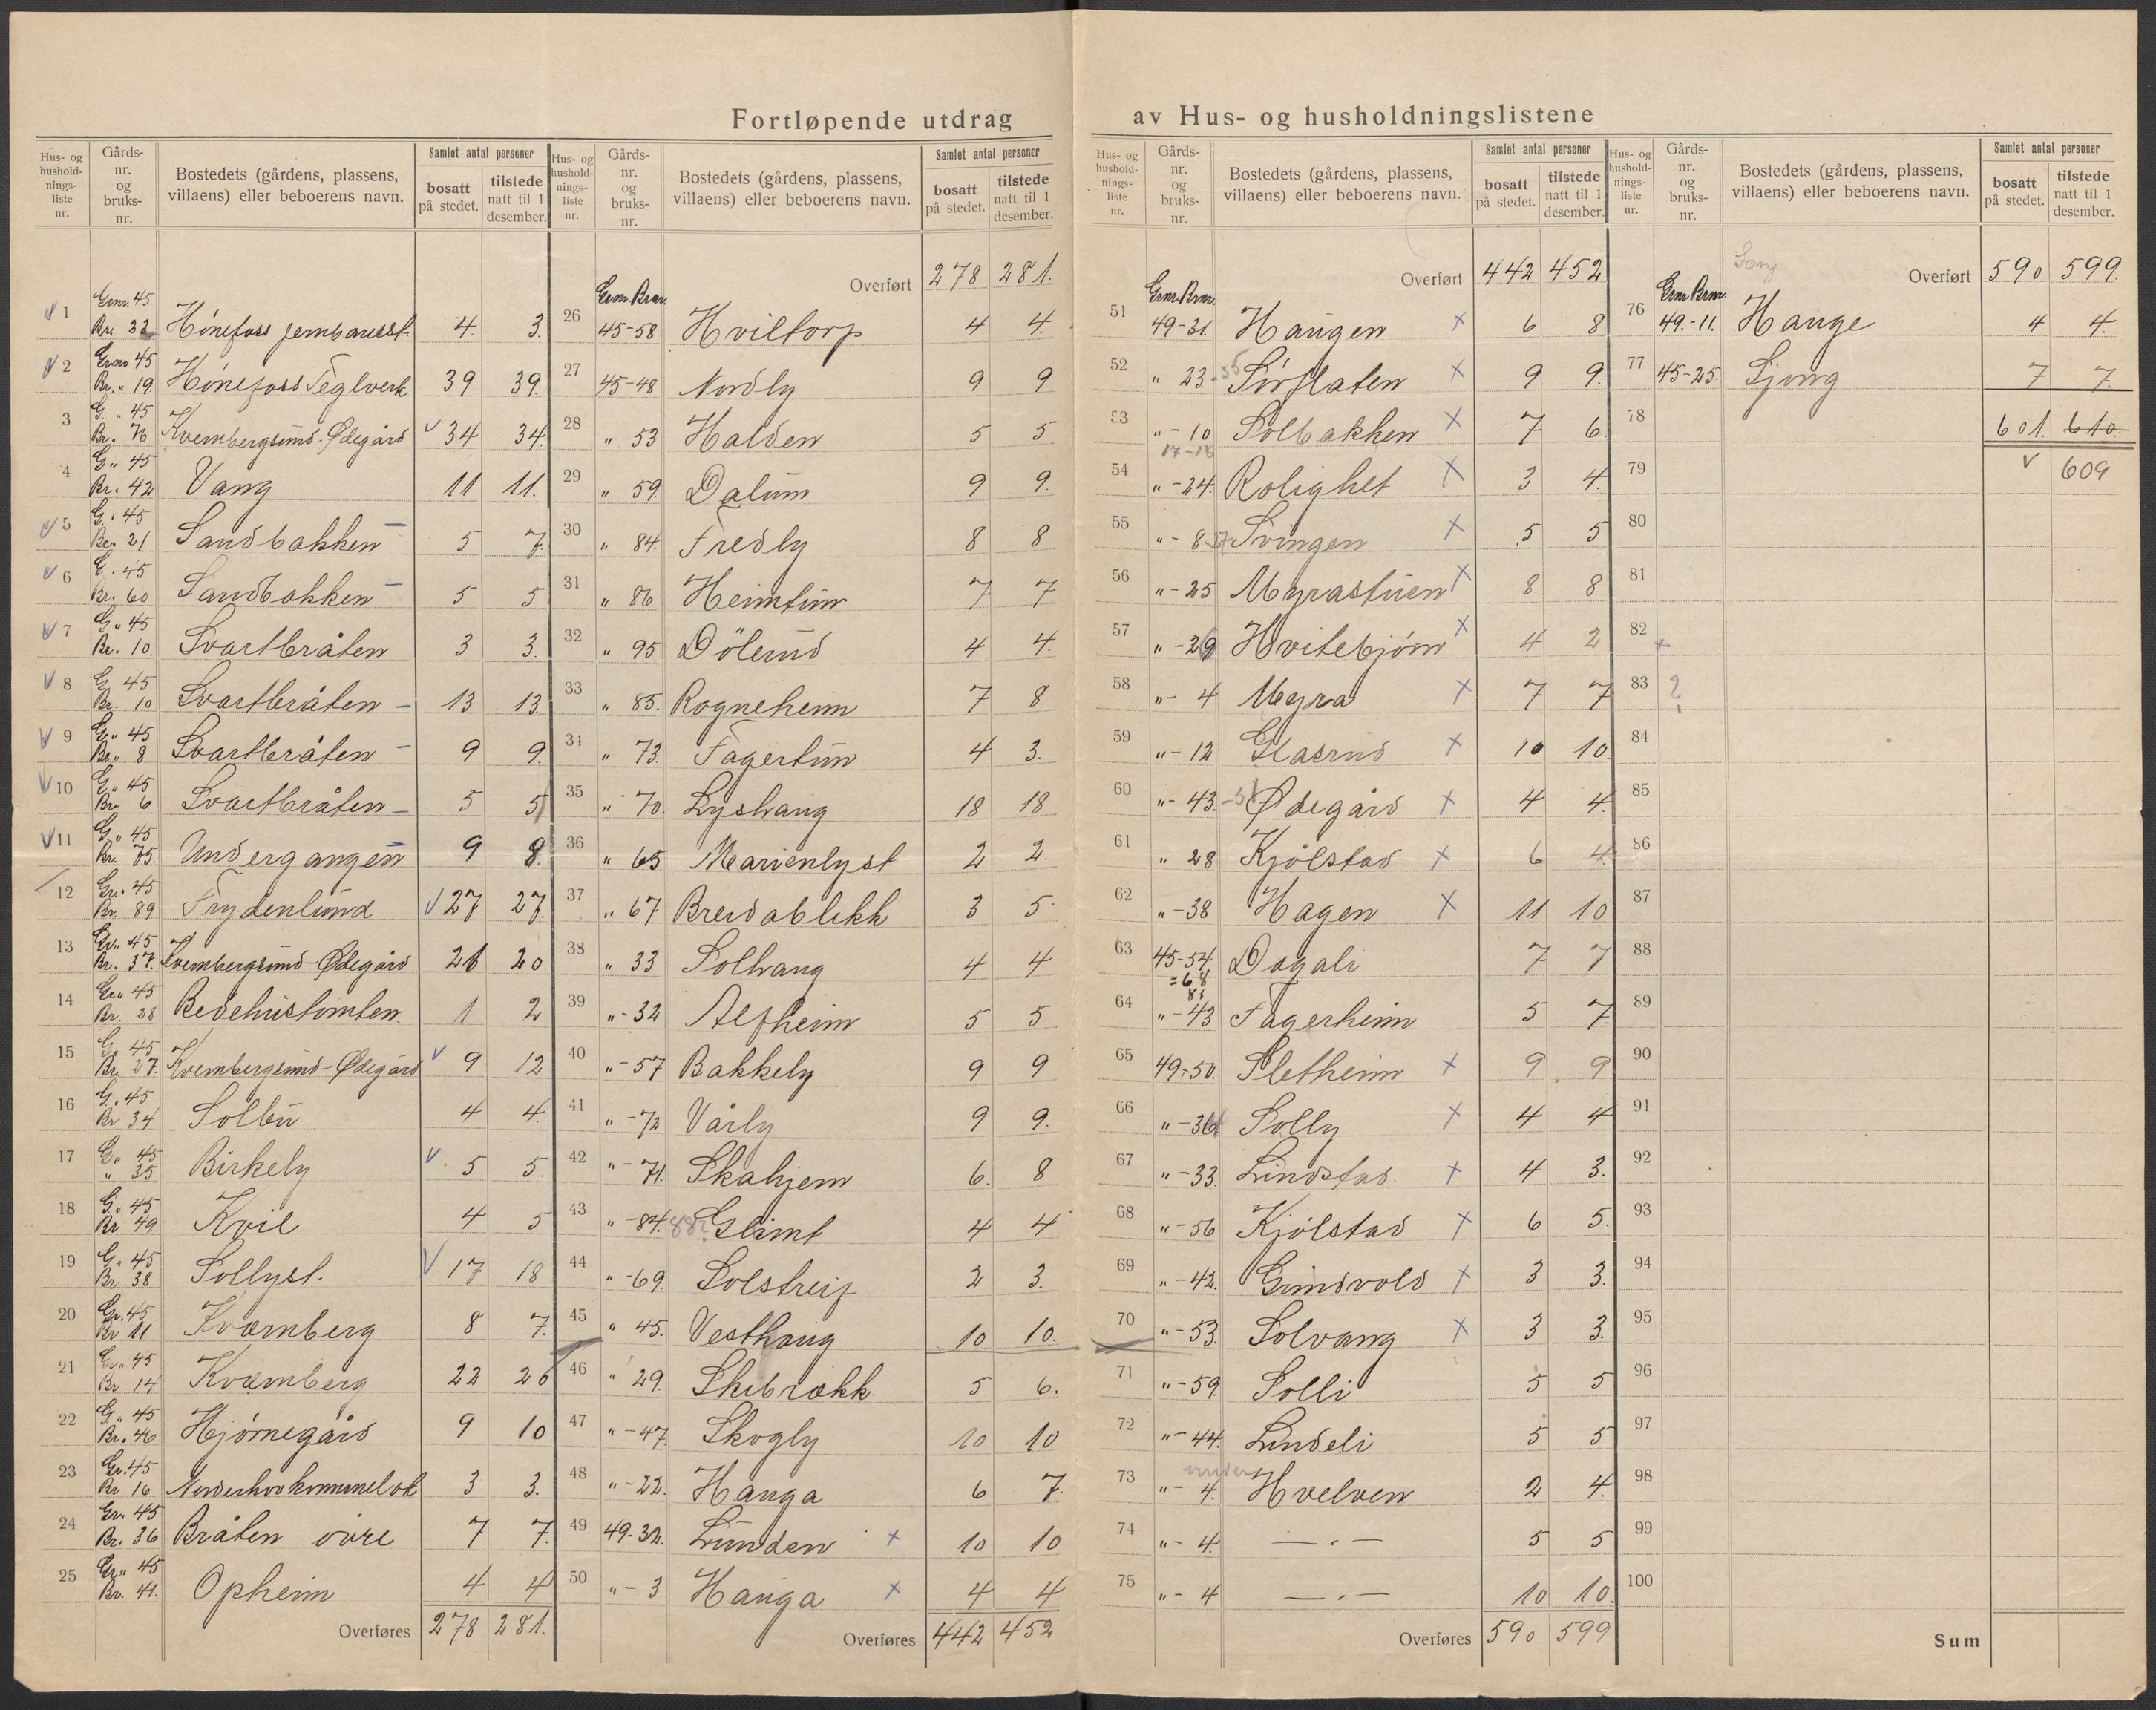 Fortløpende utdrag av Hus- og husholdningslistene
Hus- og husholdnings- liste nr. Gårds- nr. og bruks- nr. Bostedets (gårdens, plassens, villaens) eller beboerens navn. Samlet antal personer bosatt på stedet. tilstede natt til 1 desember.
1 Grnr. 45 Br. 32 Hønefoss jernbanest. 4. 3.
2 Grnr 45 Br. " 19. Hønefoss Teglverk 39 39.
3 G. " 45 Br. 76 Kvernbergsund-Ødegård 34 34.
4 G " 45 Br. 42 Vang 11 11.
5 G. " 45 Br. 21 Sandbakken 5 7.
6 G. 45 Br. 60 Sandbakken 5 5
7 G " 45 Br. 10. Svartbråten 3 3.
8 G 45 Br. 10 Svartbråten - 13 13
9 G " 45 Br. " 8 Svartbråten - 9 9.
10 G " 45 Br. 6 Svartbråten - 5 5
11 G " 45 Br. 75. Undergangen 9 8.
12 Gr. 45 Br. 89 Frydenlund 27 27.
13 Gr. 45 Br. 37. Kvernbergsund-Ødegård 21 20
14 Gr " 45 Br. 28 Bedehustomten. 1 2
15 G. 45 Br. 27. Kvernbergsund-Ødegård 9 12
16 G. 45 Br 34 Solbu 4 4.
17 G " 45 " 35 Birkely 5 5.
18 G " 45 Br 49 Kvil 4 5
19 G. 45 Br 38 Sollyst. 17 18
20 Gr. 45 Br 11 Kværnberg 8 7.
21 Gr. 45 Br 14 Kværnberg 22 26
22 G. " 45 Br. 46 Hjørnegård 9 10
23 Gr. 45 Br 16 Norderhov kommunelok 3 3.
24 Gr. 45 Br. 36 Bråten övre 7 7.
25 Gr. " 45 Br. 41. Opheim 4 4
Overføres 278 281.
Hus- og husholdnings- liste nr. Gårds- nr. og bruks- nr. Bostedets (gårdens, plassens, villaens) eller beboerens navn. Samlet antal personer bosatt på stedet. tilstede natt til 1 desember.
Overført 278 281.
Grnr. Brnr.
26 45-58 Hviltorp 4 4.
27 45-48 Nordly 9 9
28 " 53 Halden 5 5
29 " 59. Dalum 9 9.
30 " 84. Fredly 8 8
31 " 86 Heimtun 7 7
32 " 95 Dölerud 4 4.
33 " 85. Rogneheim 7 8
34 " 73. Fagertun 4 3.
35 " 70. Lyshaug 18 18
36 " 65 Marienlyst 2 2.
37 " 67 Breidablikk 3 5.
38 " 33 Solhaug 4 4
39 " - 32 Alfheim 5 5
40 " - 57 Bakkely 9 9
41 " - 72 Vårly 9 9.
42 " - 71. Skahjem 6. 8
43 " - 84. 88? Glimt 4 4
44 " - 69. Solstreif 2 3.
45 " 45. Vesthaug 10 10.
46 " 29. Skibrækk. 5 6.
47 " - 47. Skogly 10 10
48 " - 22. Hauga 6 7.
49 49-32. Lunden × 10 10
50 " - 3 Hauga × 4 4
Overføres 442 452
Hus- og husholdnings- liste nr. Gårds- nr. og bruks- nr. Bostedets (gårdens, plassens, villaens) eller beboerens navn. Samlet antal personer bosatt på stedet. tilstede natt til 1 desember.
Overført 442 452
Grnr. Brnr.
51 49-21. Haugen × 6 8
52 " 23-35 Sørflaten × 9 9.
53 " - 10 Solbakken × 7 6
17-18
54 " - 24. Rolighet × 3 4.
55 " - 8 Svingen × 5 5
56 " - 25 Myrastuen × 8 8
57 " - 29 Hvitebjørn × 4 2
58 " - 4 Myra × 7 7
59 " - 12 Glasrud × 10 10.
60 " - 43. Ødegård × 4 4.
61 " 28 Kjölstad × 6 4.
62 " - 38 Hagen × 11 10
63 45-54 Dagali 7 7
= 68
81
64 " - 43 Fagerheim 5 7.
65 49-50. Sletheim × 9 9
66 " - 36 Solly × 4 4
67 " - 33. Lindstad. × 4 3.
68 " - 56 Kjölstad × 6 5.
69 " - 42. Grindvold × 3 3.
70 " - 53. Solvang × 3 3.
71 " - 59. Solli 5 5
72 " - 44. Lindeli 5 5
under
73 " - 4. Hvelven 2 4.
74 " - 4. — . — 5 5
75 " - 4 — . — 10 10.
Overføres 590 599
Hus- og husholdnings- liste nr. Gårds- nr. og bruks- nr. Bostedets (gårdens, plassens, villaens) eller beboerens navn. Samlet antal personer bosatt på stedet. tilstede natt til 1 desember.
Overført 590 599.
Grnr. Brnr.
76 49.-11. Hauge 4 4.
77 45-25. Ljong 7 7.
78 601. 610.
79 609
80
81
82
83 ?
84
85
86
87
88
89
90
91
92
93
94
95
96
97
98
99
100
Sum